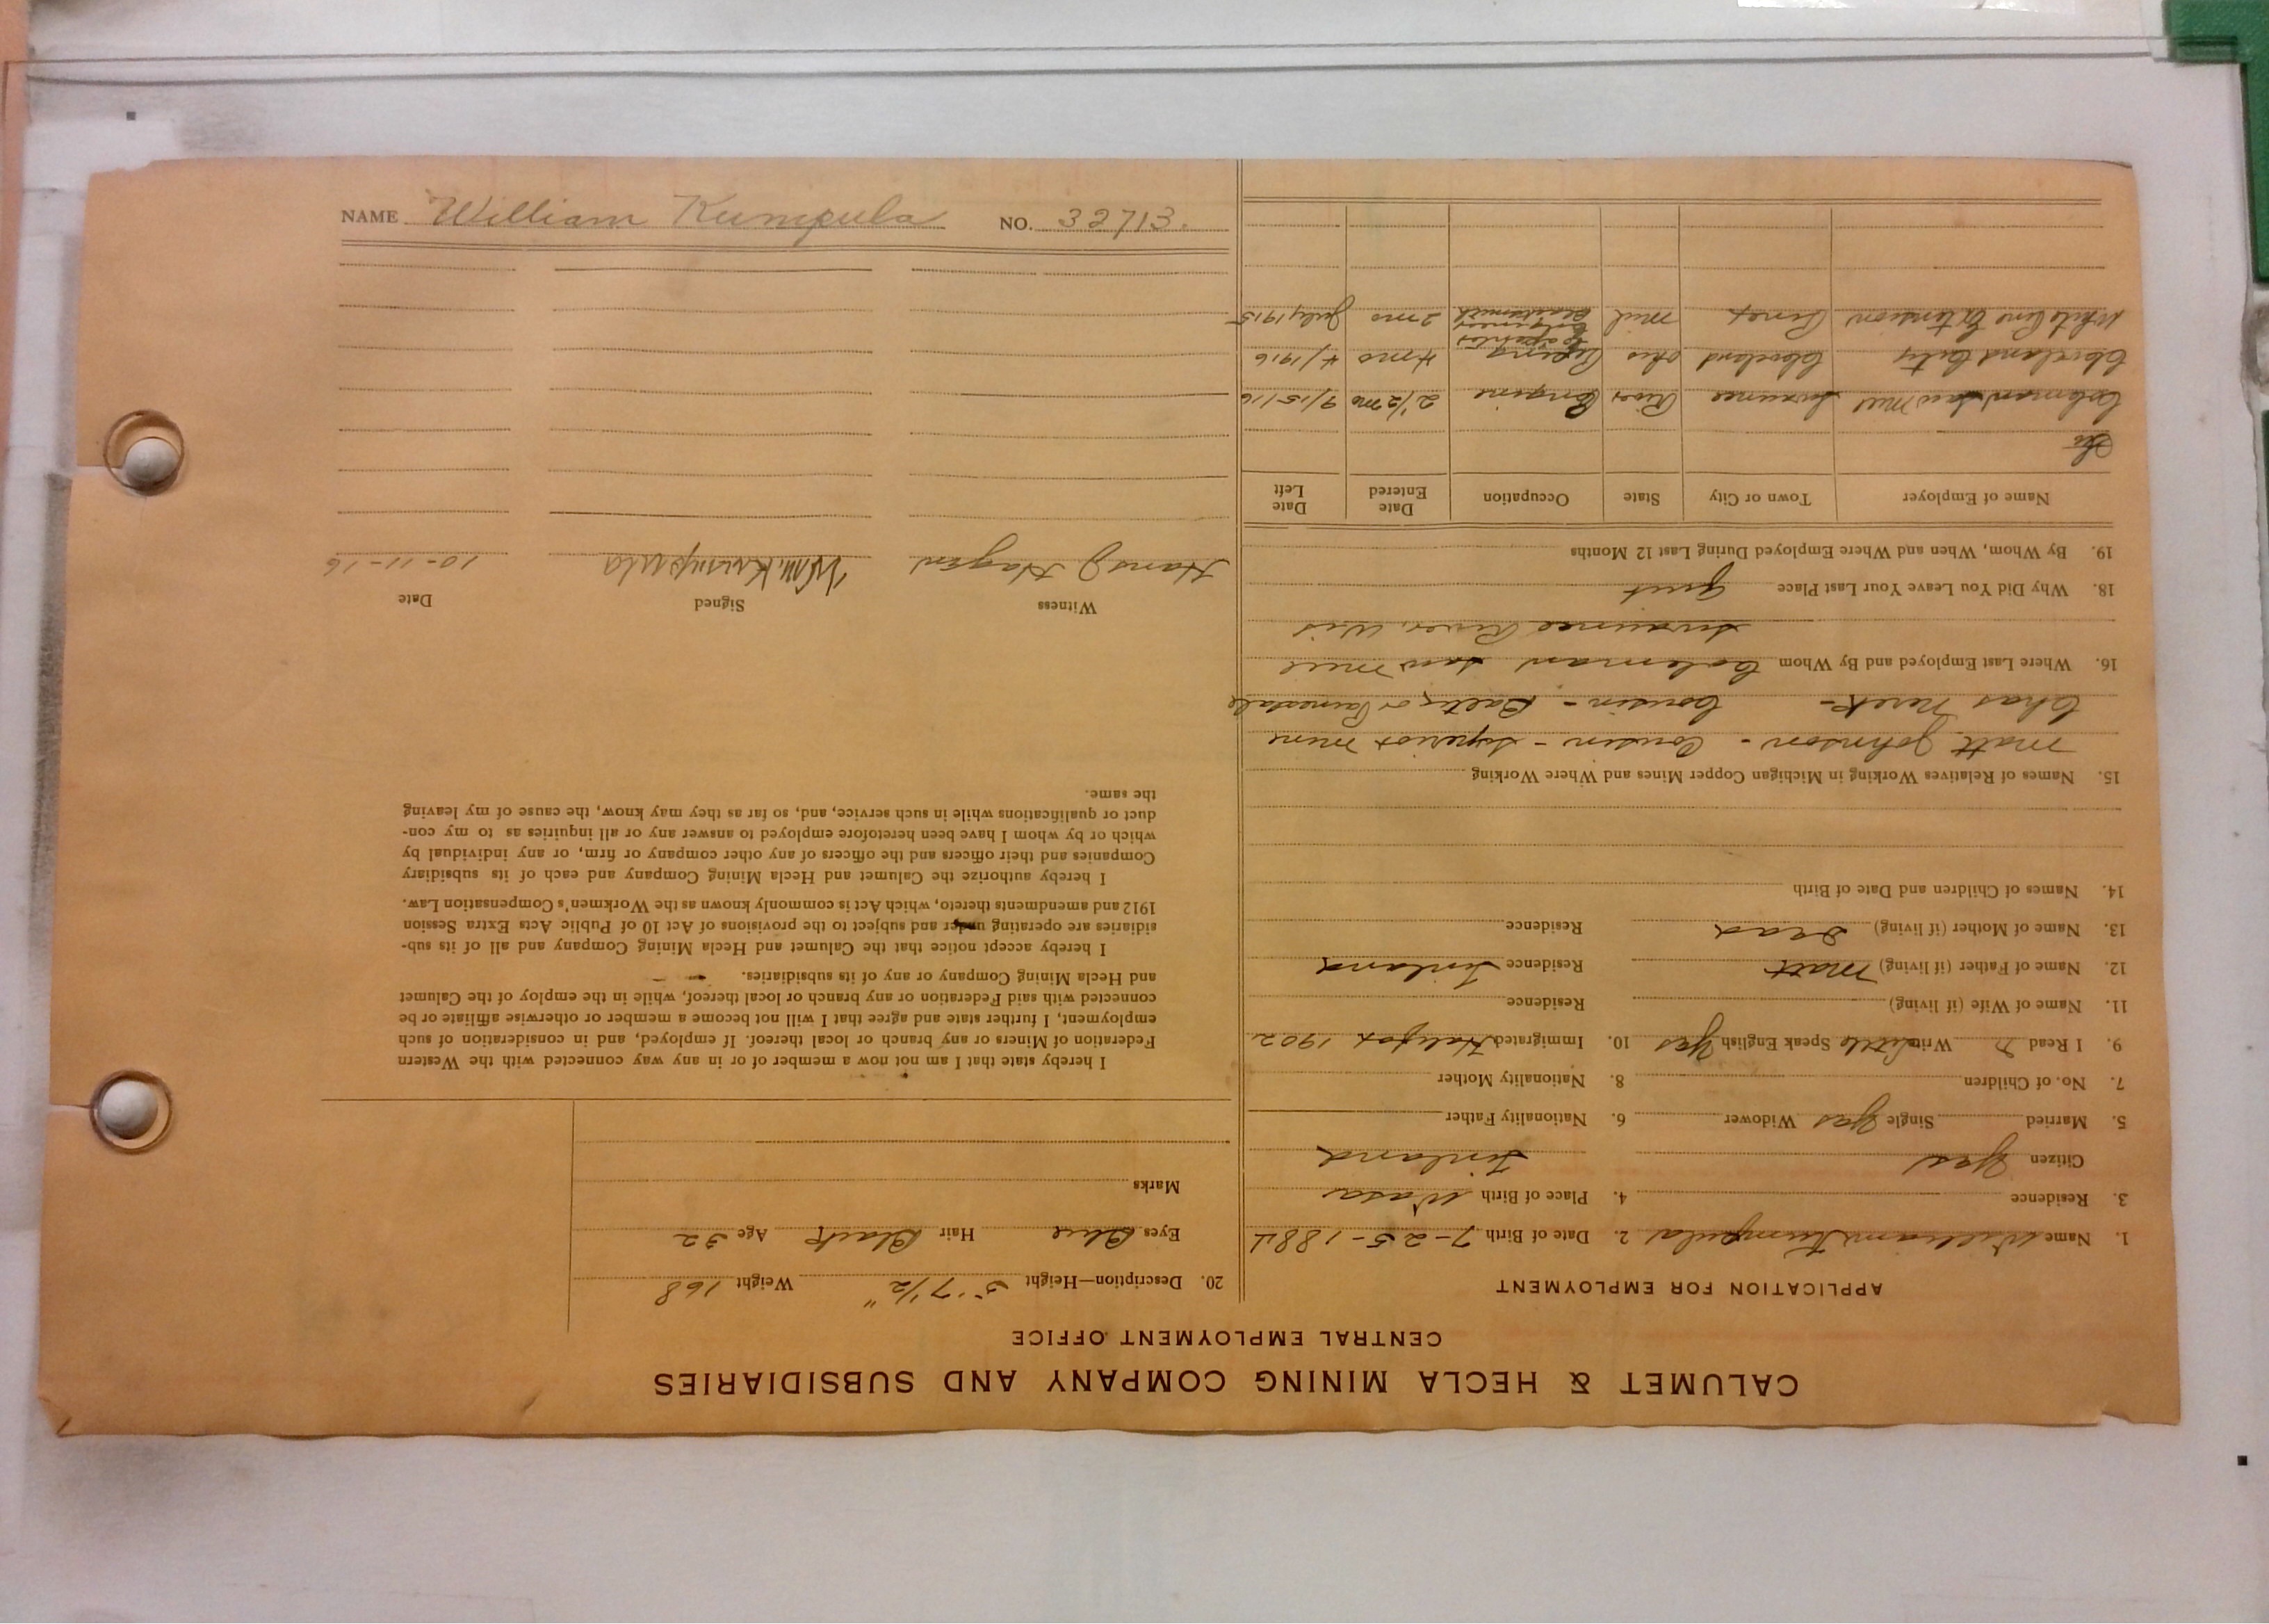 CALUMET & HECLA MINING COMPANY AND SUBSIDIARIES
CENTRAL EMPLOYMENT OFFICE
APPLICATION FOR EMPLOYMENT
1. Name William Kumpula 2. Date of Birth 7-25-1884
3. Residence 4. Place of Birth Wasa
Citizen Yes Finland
5. Married Single Yes Widower 6. Nationality Father
7. No. of Children 8. Nationality Mother
9. I Read Write Little Speak English Yes 10. Immigrated Halifax 1902
11. Name of Wife (if living) Residence
12. Name of Father (if living) Matt Residence Finland
13. Name of Mother (if living) Dead Residence
14. Names of Children and Date of Birth
15. Names of Relatives Working in Michigan Copper Mines and Where Working
Matt Johnson - Cousin - Superior mine
Chas - Cousin - Baltic or Painesdale
16. Where Last Employed and By Whom Coleman Saw Mill
River, Wis
18. Why Did You Leave Your Last Place quit
19. By Whom, When and Where Employed During Last 12 Months
Name of Employer Town or City State Occupation Date Entered Date Left
Coleman Saw Mill River Engine 2 1/2 mo 9/15/16
Cleveland City Cleveland Ohio 4 mo 4/1916
White Pine Extension Mich blacksmith 2 mo July 1915
20. Description—Height 5' 7 1/2" Weight 168
Eyes Blue Hair Black Age 32
Marks
I hereby state that I am not now a member of or in any way connected with the Western
Federation of Miners or any branch or local thereof. If employed, and in consideration of such
employment, I further state and agree that I will not become a member or otherwise affiliate or be
connected with said Federation or any branch or local thereof, while in the employ of the Calumet
and Hecla Mining Company or any of its subsidiaries.
I hereby accept notice that the Calumet and Hecla Mining Company and all of its sub-
sidiaries are operating under and subject to the provisions of Act 10 of Public Acts Extra Session
1912 and amendments thereto, which Act is commonly known as the Workmen's Compensation Law.
I hereby authorize the Calumet and Hecla Mining Company and each of its subsidiary
Companies and their officers and the officers of any other company or firm, or any individual by
which or by whom I have been heretofore employed to answer any or all inquiries as to my con-
duct or qualifications while in such service, and, so far as they may know, the cause of my leaving
the same.
Witness Signed Date
Hans J Hagen Wm. Kumpula 10-11-16
NAME William Kumpula NO. 32713.